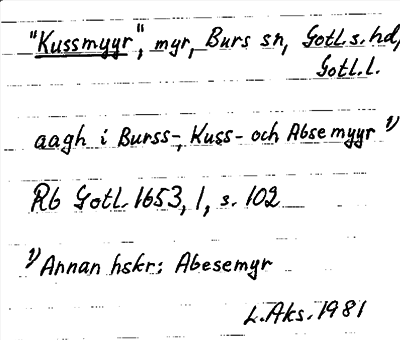 "Kussmyyr", myr, Burs sn, Gotl.s.hd,
Gotl.l.
aagh i Burss-, Kuss- och Abse myyr 1)
Rb Gotl. 1653, 1, s. 102
1) Annan hskr: Abesemyr
L.Aks. 1981